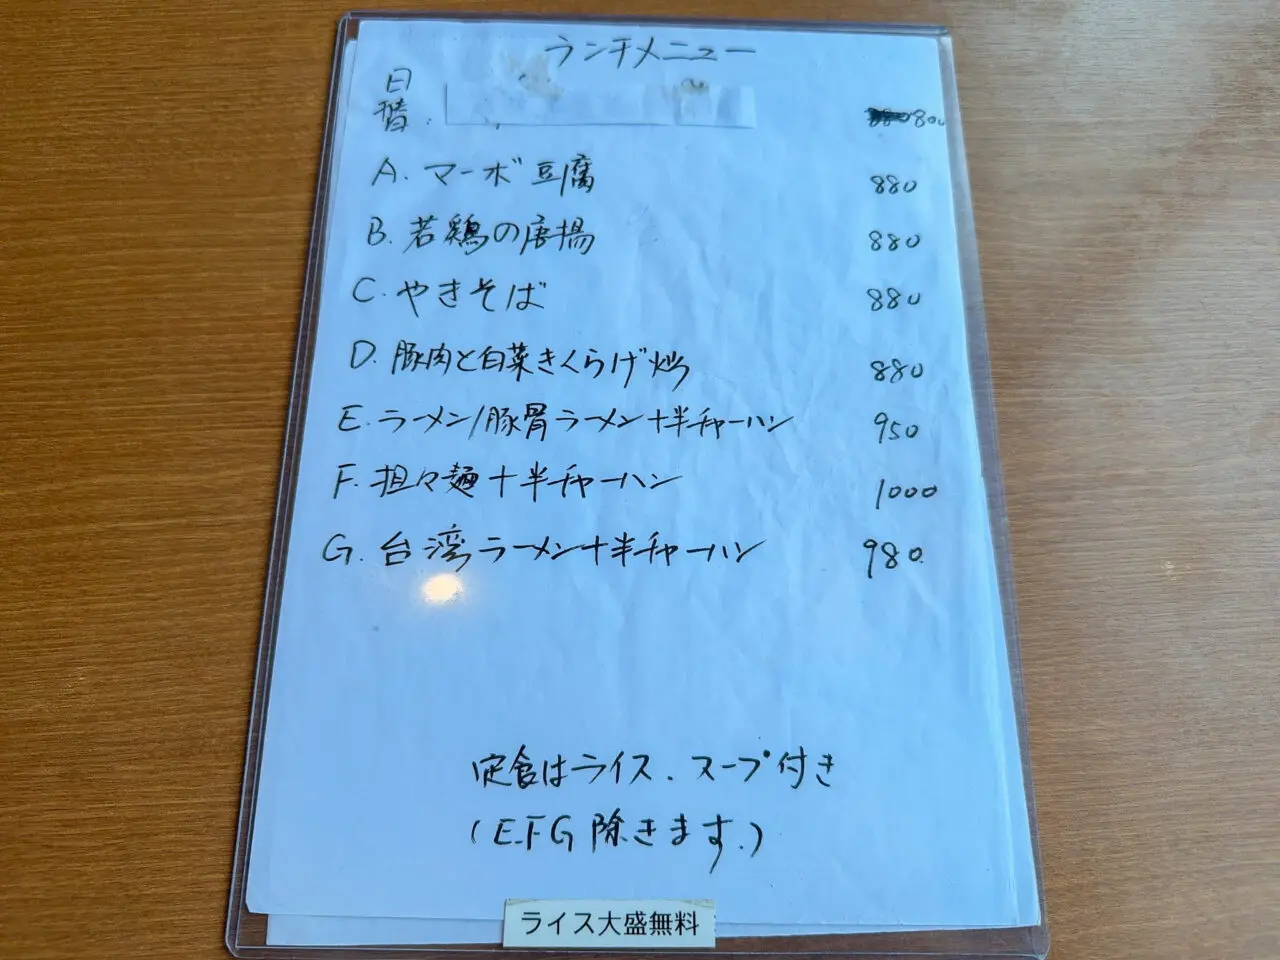 ランチメニュー
日替. 800
A. マーボ豆腐 880
B. 若鶏の唐揚 880
C. やきそば 880
D. 豚肉と白菜きくらげ炒 880
E. ラーメン/豚骨ラーメン+半チャーハン 950
F. 担々麺+半チャーハン 1000
G. 台湾ラーメン+半チャーハン 980.
定食はライス、スープ付き
(E.FG除きます.)
ライス大盛無料